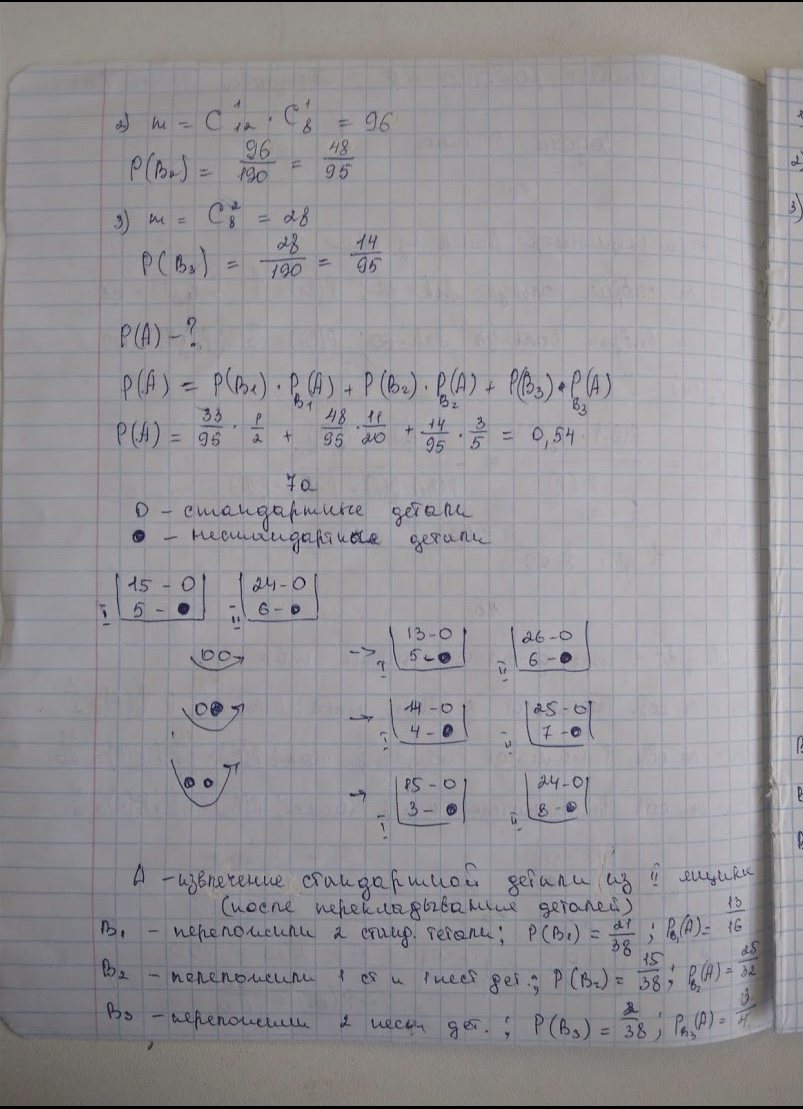 2) m = C¹₁₂ · C¹₈ = 96
P(B₂) = 96/190 = 48/95
3) m = C²₈ = 28
P(B₃) = 28/190 = 14/95
P(A) - ?
P(A) = P(B₁) · P_B₁(A) + P(B₂) · P_B₂(A) + P(B₃) · P_B₃(A)
P(A) = 33/95 · 1/2 + 48/95 · 11/20 + 14/95 · 3/5 = 0,54
7a
O - стандартные детали
● - нестандартные детали
I 15 - O 5 - ● II 24 - O 6 - ●
OO → I 13 - O 5 - ● II 26 - O 6 - ●
O● → I 14 - O 4 - ● II 25 - O 7 - ●
●● → I 15 - O 3 - ● II 24 - O 8 - ●
A - извлечение стандартной детали из II ящика
(после перекладывания деталей)
B₁ - переложили 2 станд. тетали; P(B₁) = 21/38; P_B₁(A) = 13/16
B₂ - переложили 1 ст и 1 нест дет.; P(B₂) = 15/38; P_B₂(A) = 25/32
B₃ - переложили 2 несн дет.; P(B₃) = 2/38; P_B₃(A) = 3/4
1
2)
3)
B
B
B